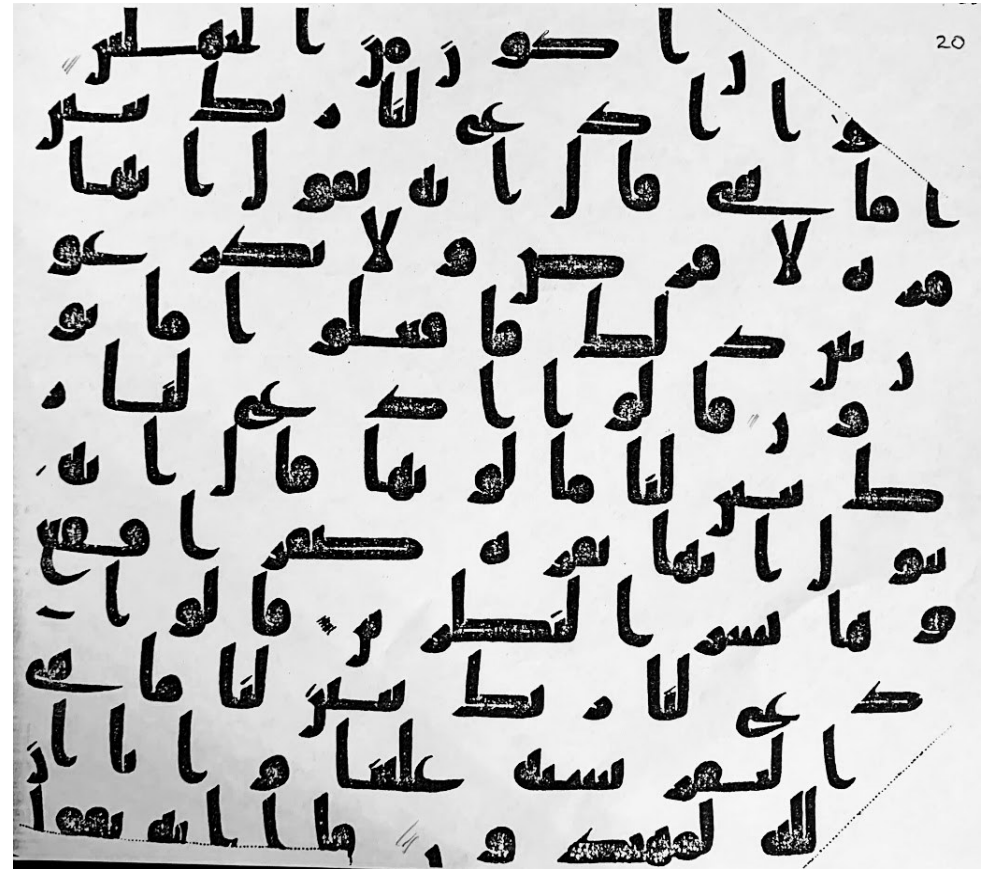 ن اكون من الجهلين
لوا ادع لنا ربك يبين
ا ما هي قال انه يقول انها
بقرة لا فرض ولا بكر عو
ن بين ذلك فافعلوا ما تومر
ون قالوا ادع لنا ر
بك يبين لنا ما لونها قال انه
يقول انها بقرة صفرا فقع
لونها تسر النظرين قالوا ا
دع لنا ربك يبين لنا ما هي
ان البقر تشبه علينا وانا ان
الله لمهتدون قال انه يقول ا
20